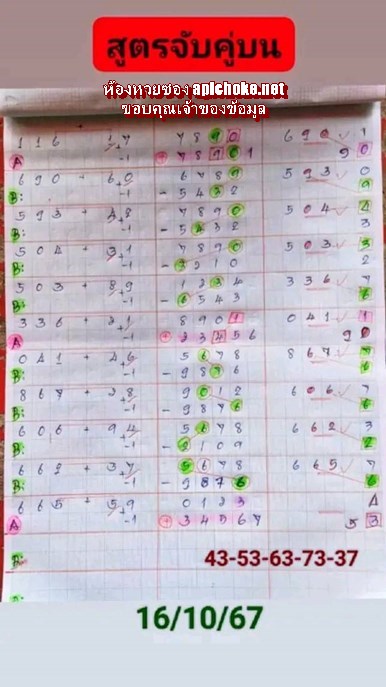 สูตรจับคู่บน
ห้องหวยซอง apichoke.net
ขอบคุณเจ้าของข้อมูล
1 1 6 + 17 7 8 9 0 6 9 0 ✓ 1
A -1 + 7 8 9 0 1 9 0
6 9 0 + 60 6 7 8 9 5 9 3 0
B: -1 - 5 4 3 2 9
5 9 3 + 48 7 8 9 0 5 0 4 4
B: -1 - 5 4 3 2 3
5 0 4 + 31 7 8 9 0 5 0 3 3
B: -1 2
5 0 3 + 89 1 2 3 4 3 3 6 7
B: -1 - 6 5 4 3 6
3 3 6 + 21 8 9 0 1 0 4 1 1
A -1 + 2 3 4 5 6 9 0
0 4 1 + 46 5 6 7 8 8 6 7 7
B: -1 - 9 8 7 6 6
8 6 7 + 28 9 0 1 2 6 0 6 7
B: -1 - 9 8 7 6 6
6 0 6 + 94 5 6 7 8 6 6 2 3
B: -1 - 2 1 0 9 2
6 6 2 + 37 5 6 7 8 6 6 5 7
B: -1 - 9 8 7 6 6
6 6 5 + 59 0 1 2 3
A -1 + 3 4 5 6 7 5 3
43-53-63-73-37
16/10/67